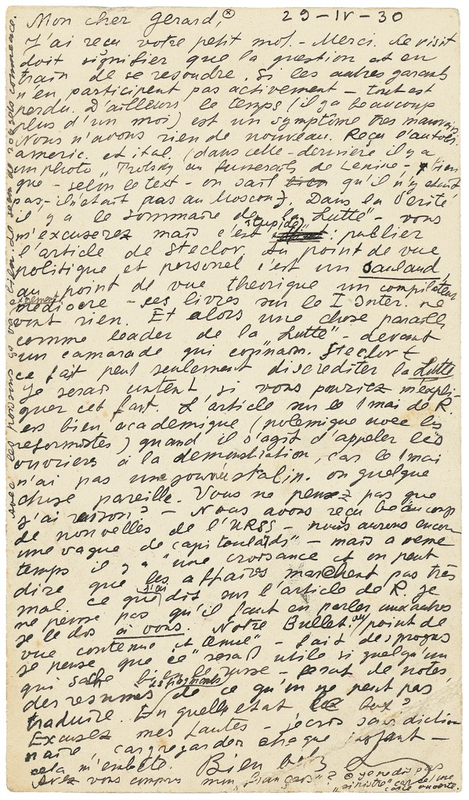 Mon cher Gerard, ⊗ 29-IV-30
J'ai reçu votre petit mot. - Merci. Le visit
doit signifier que la question est en
train de se resoudre. Si les autres garants
n'en participent pas activement - tout est
perdu. D'ailleurs le temps (il y a beaucoup
plus d'un mois) est un symptôme très mauvais.
Nous n'avons rien de nouveau. Reçu l'autob.
americ. et ital. (dans cette dernière il y a
un photo "Trotsky aux funerails de Lenine -
que - selon le text - on sait qu'il n'y était
pas - il n'était pas au Moscou). Dans la Verité
il y a le sommaire de la "Lutte" - vous
m'excuserez mais c'est stupide: publier
l'article de Steclov. Du point de vue
politique et personel c'est un salaud
au point de vue theorique un compilateur
mediocre - ses livres sur le I Inter. ne
vont rien. Et alors une chose pareille
comme leader de la "Lutte" - devant
un camarade qui Steclov
ce fait peut seulement discrediter la Lutte
Je serais content, si vous pouviez m'expli-
quer cet fait. L'article sur le 1 mai de R.
est bien academique (polemique avec les
reformistes) quand il s'agit d'appeler les
ouvriers à la demonstration, car le 1 mai
n'ai pas une ou quelque
chose pareille. Vous ne pensez pas que
j'ai raison? - Nous avons reçu beaucoup
de nouvelles de l'URSS - nous aurons encore
une vague de "capitulards" - mais a meme
temps il y a "une croissance et on peut
dire que les affaires marchent pas très
mal. Ce que j'ai dit sur l'article de R. je
ne pense pas qu'il faut en parler aux autres
je le dis à vous. Notre Bulletin, "point de
vue contenue et tenue" - fait des progres
Je pense que ce serait utile si quelqu'un
qui sache bien le russe - ferait de notes
des resumés de ce qu'on ne peut pas
traduire. En quelle etat
Excusez mes fautes - j'ecris sans diction
naire car regarder chaque instant -
cela m'embête. Bien
Avez vous compris mon "français"? ⊗ je ne dis pas
"sinistre" car c'est une
carte ouverte.